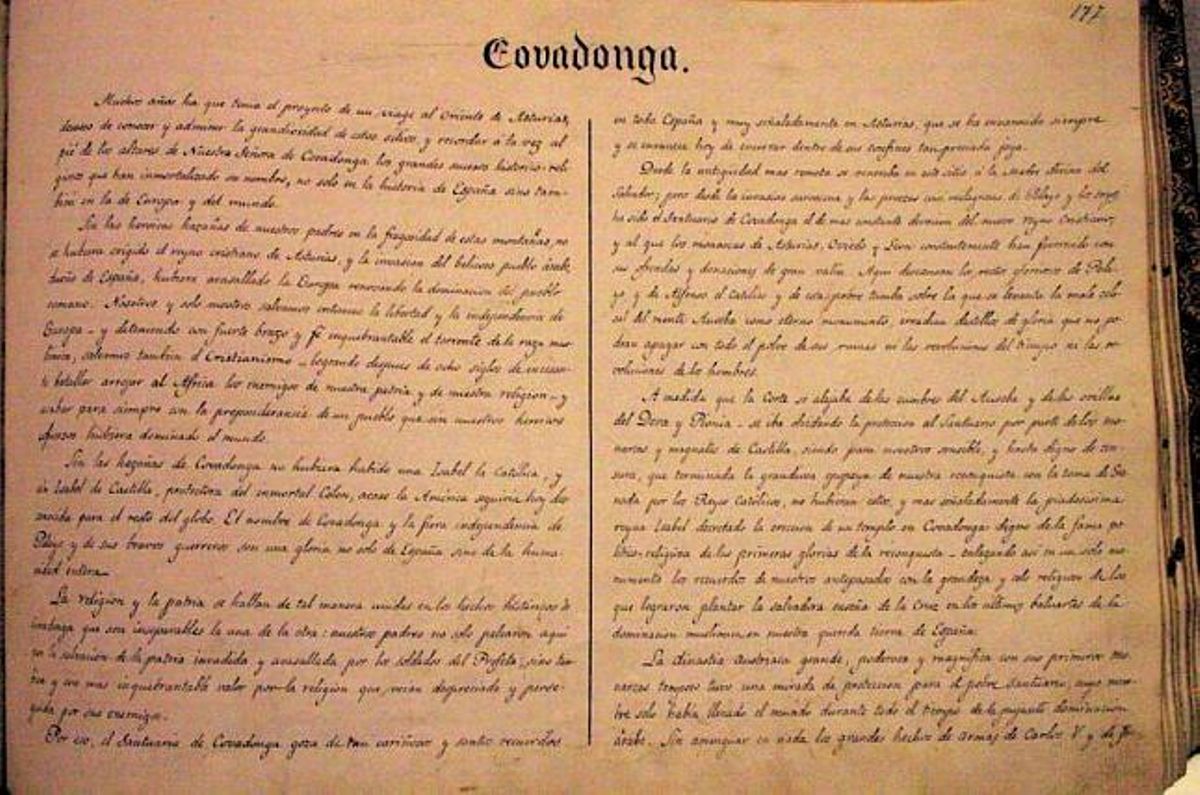 177
Covadonga.
Muchos años ha que tenia el proyecto de un viage al Oriente de Asturias,
deseoso de conocer y admirar la grandiosidad de estos sitios, y recordar á la vez al
pié de los altares de Nuestra Señora de Covadonga los grandes sucesos historico-reli-
giosos que han inmortalizado su nombre, no solo en la historia de España sino tam-
bien en la de Europa y del mundo.
Sin las heroicas hazañas de nuestros padres en la fragosidad de estas montañas, no
se hubiera erigido el reyno cristiano de Asturias, y la invasion del belicoso pueblo árabe,
dueño de España, hubiera avasallado la Europa renovando la dominacion del pueblo
romano. Nosotros y solo nosotros salvamos entonces la libertad y la independencia de
Europa - y deteniendo con fuerte brazo y fé inquebrantable el torrente de la raza
salvamos tambien el Cristianismo - logrando despues de ocho siglos de incesan-
te batallar arrojar al Africa los enemigos de nuestra patria y de nuestra religion - y
acabar para siempre con la preponderancia de un pueblo que sin nuestros heroicos
esfuerzos hubiera dominado el mundo.
Sin las hazañas de Covadonga no hubiera habido una Isabel la Católica, y
sin Isabel de Castilla, protectora del inmortal Colon, acaso la América seguiria hoy des-
conocida para el resto del globo. El nombre de Covadonga y la fiera independencia de
Pelayo y de sus bravos guerreros son una gloria no solo de España sino de la huma-
nidad entera.
La religion y la patria se hallan de tal manera unidas en los hechos históricos de
Covadonga que son inseparables la una de la otra: nuestros padres no solo pelearon aqui
por la salvacion de la patria invadida y avasallada por los soldados del Profeta, sino tam-
bien y con mas inquebrantable valor por la religion que veian despreciada y perse-
guida por sus enemigos.
Por eso, el Santuario de Covadonga goza de tan cariñosos y santos recuerdos
en toda España y muy señaladamente en Asturias, que se ha envanecido siempre
y se envanece hoy de encerrar dentro de sus confines tan preciada joya.
Desde la antigüedad mas remota se veneraba en este sitio á la Madre divina del
Salvador; pero desde la invasion sarracena y las proezas casi milagrosas de Pelayo y los suyos
ha sido el Santuario de Covadonga el mas constante del nuevo reyno Cristiano,
y al que los monarcas de Asturias, Oviedo y Leon constantemente han favorecido con
sus ofrendas y donaciones de gran valía. Aqui descansan los restos gloriosos de Pela-
yo y de Alfonso el Católico y de esta pobre tumba sobre la que se levanta la mole colo-
sal del monte Auseba como eterno monumento, irradian destellos de gloria que no po-
dran apagar con todo el polvo de sus ruinas ni las revoluciones del tiempo ni las re-
voluciones de los hombres.
A medida que la Corte se alejaba de las cumbres del Auseba y de las orillas
del Deva y Pionia - se iba olvidando la proteccion al Santuario por parte de los mo-
narcas y magnates de Castilla, siendo para nosotros sensible, y hasta digno de cen-
sura, que terminada la grandiosa epopeya de nuestra reconquista con la toma de Gra-
nada por los Reyes Católicos, no hubieran estos, y mas señaladamente la piadosisima
reyna Isabel decretado la ereccion de un templo en Covadonga digno de la fama po-
litico-religiosa de las primeras glorias de la reconquista - enlazando así en un solo mo-
numento los recuerdos de nuestros antepasados con la grandeza y celo religioso de los
que lograron plantar la salvadora enseña de la Cruz en los últimos baluartes de la
dominacion muslimica en nuestra querida tierra de España.
La dinastia austriaca grande, poderosa y magnifica con sus primeros mo-
narcas tampoco tuvo una mirada de proteccion para el pobre Santuario, cuyo nom-
bre solo habia llenado el mundo durante todo el tiempo de la pujante dominacion
árabe. Sin amenguar en nada los grandes hechos de armas de Carlos V. y de Fe-